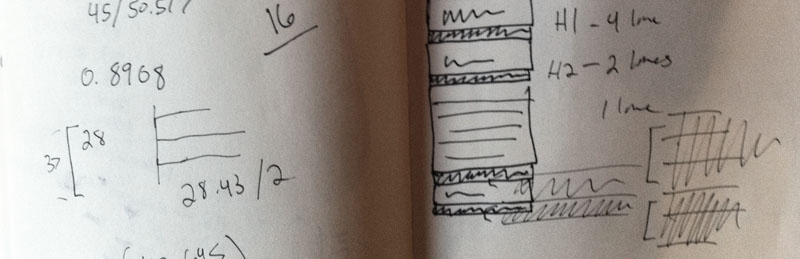 16
0.8968
28
28.43/2
H1 - 4 lines
H2 - 2 lines
1 line